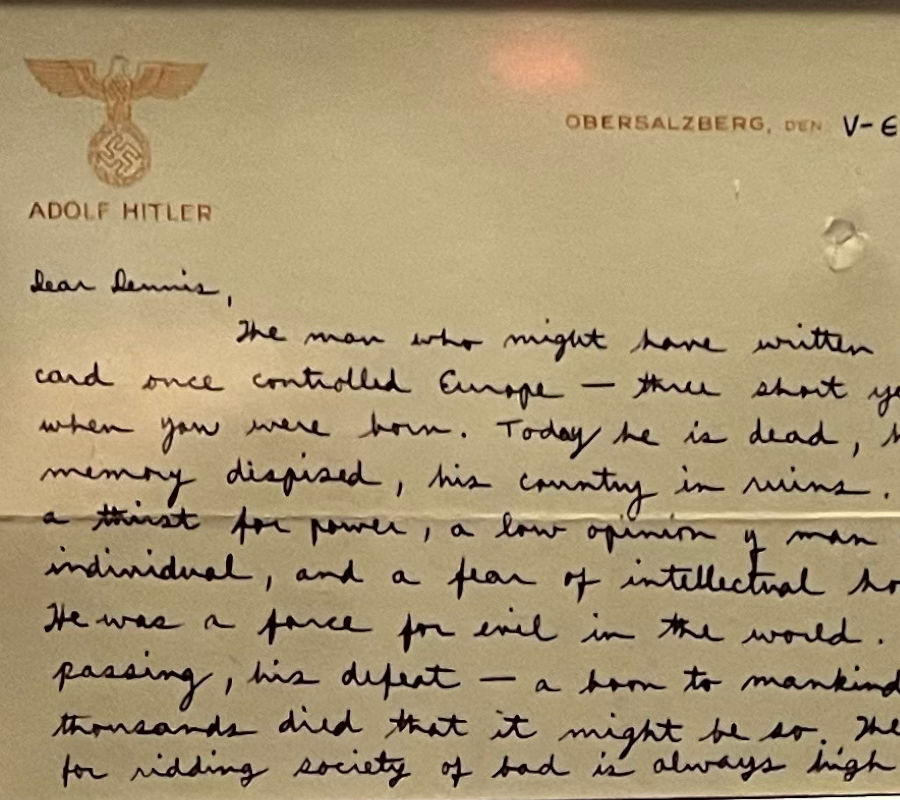 OBERSALZBERG, DEN V-E
ADOLF HITLER
Dear Dennis,
The man who might have written
card once controlled Europe — three short ye
when you were born. Today he is dead, h
memory despised, his country in ruins.
a thirst for power, a low opinion of man
individual, and a fear of intellectual ho
He was a force for evil in the world.
passing, his defeat — a boon to mankind
thousands died that it might be so. The
for ridding society of bad is always high